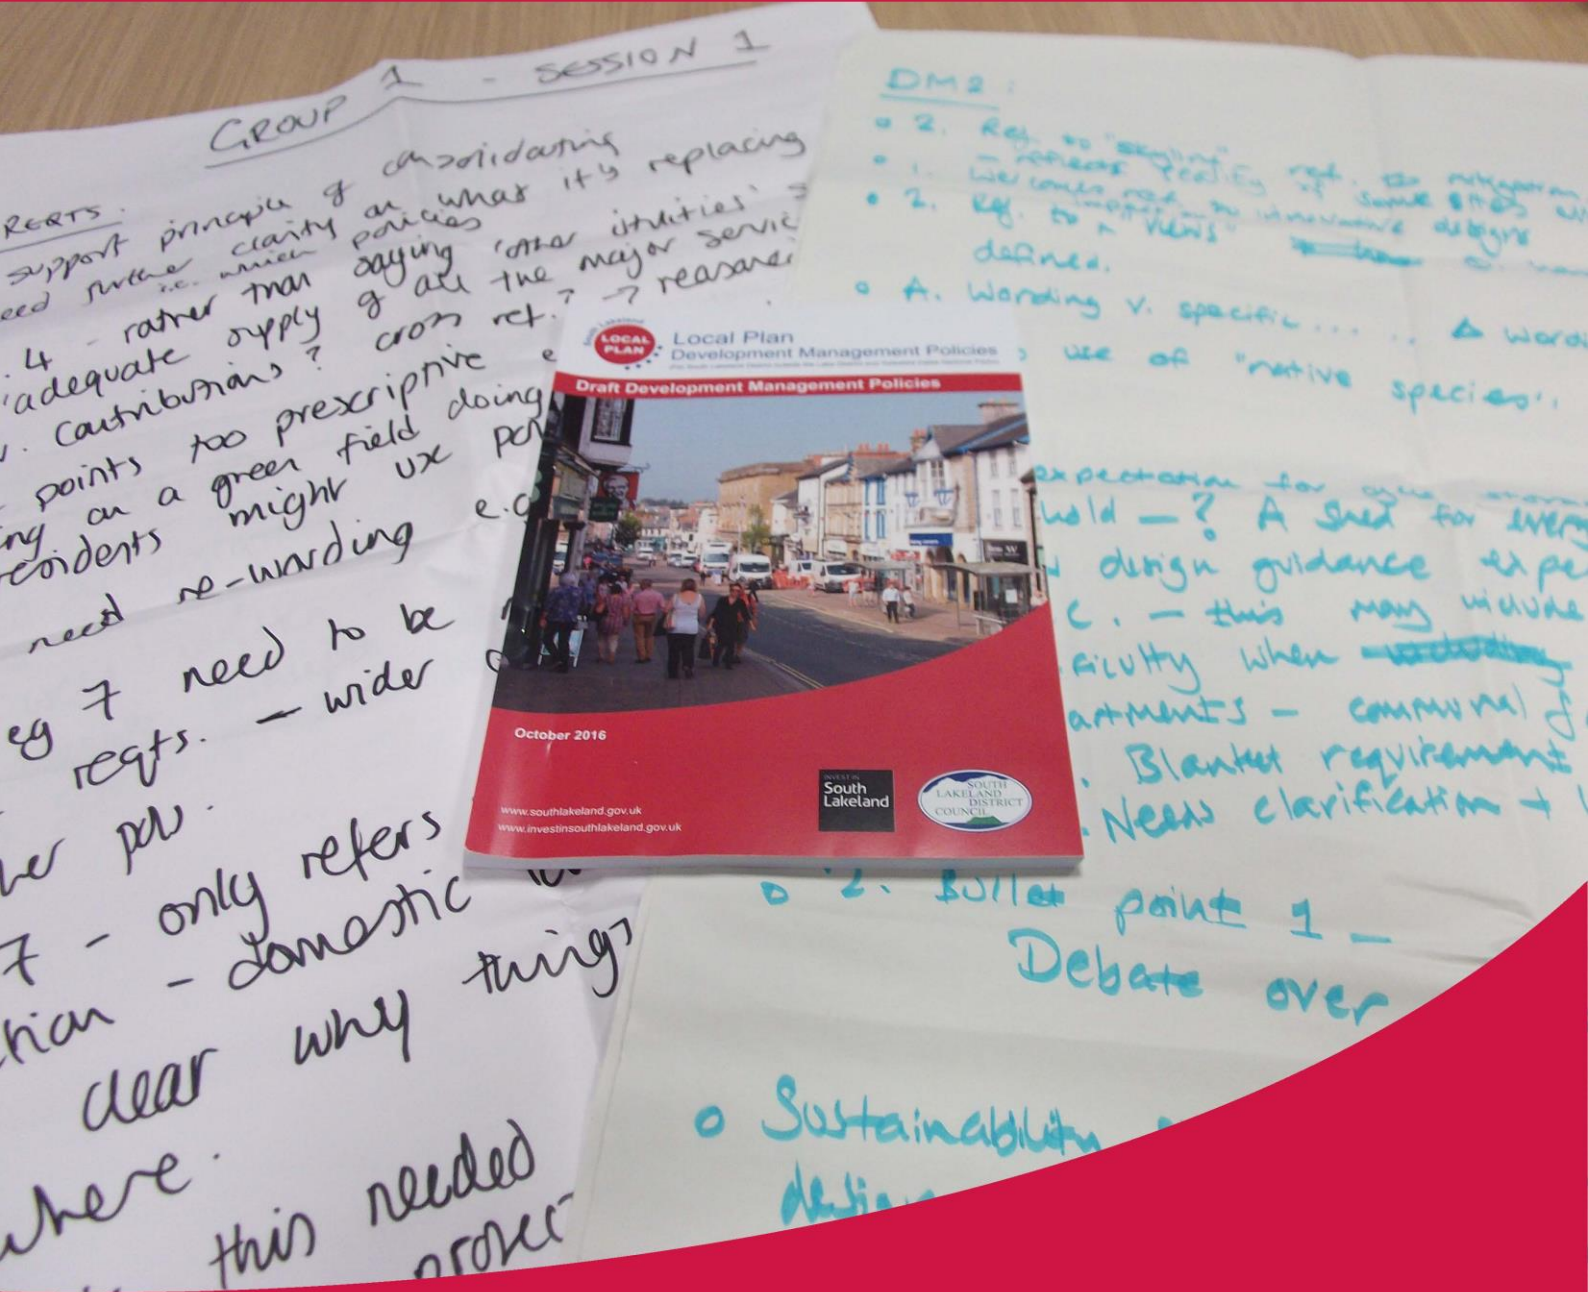 GROUP 1 - SESSION 1
REQTS.
support principle of consolidating
need further clarity on what it's replacing
i.e. which policies
.4 - rather than saying 'other utilities'
'adequate supply of all the major servic
. Contributions? cross ref.? → reasona
points too prescriptive e
ing on a green field doing
residents might use
need re-wording e.g
eg 7 need to be
reqts. - wider
7 - only refers
- domestic
clear why things
where.
this needed
DM2:
2. Ref. to "skyline" ref. to mitigation
- reflects reality of some sites
1. Welcomes innovative designs
2. Ref. to "views"
defined.
A. Wording v. specific..... Δ word
use of "native
species".
expectation for cycle storage
hold - ? A shed for every
design guidance expe
C. - this may include
ficulty when
artments - communal f
. Blanket requirement
. Needs clarification +
2. Bullet point 1 -
Debate over
Sustainability
design
South Lakeland
LOCAL
PLAN
Local Plan
Development Management Policies
Draft Development Management Policies
October 2016
www.southlakeland.gov.uk
www.investinsouthlakeland.gov.uk
INVEST IN
South
Lakeland
SOUTH
LAKELAND
DISTRICT
COUNCIL